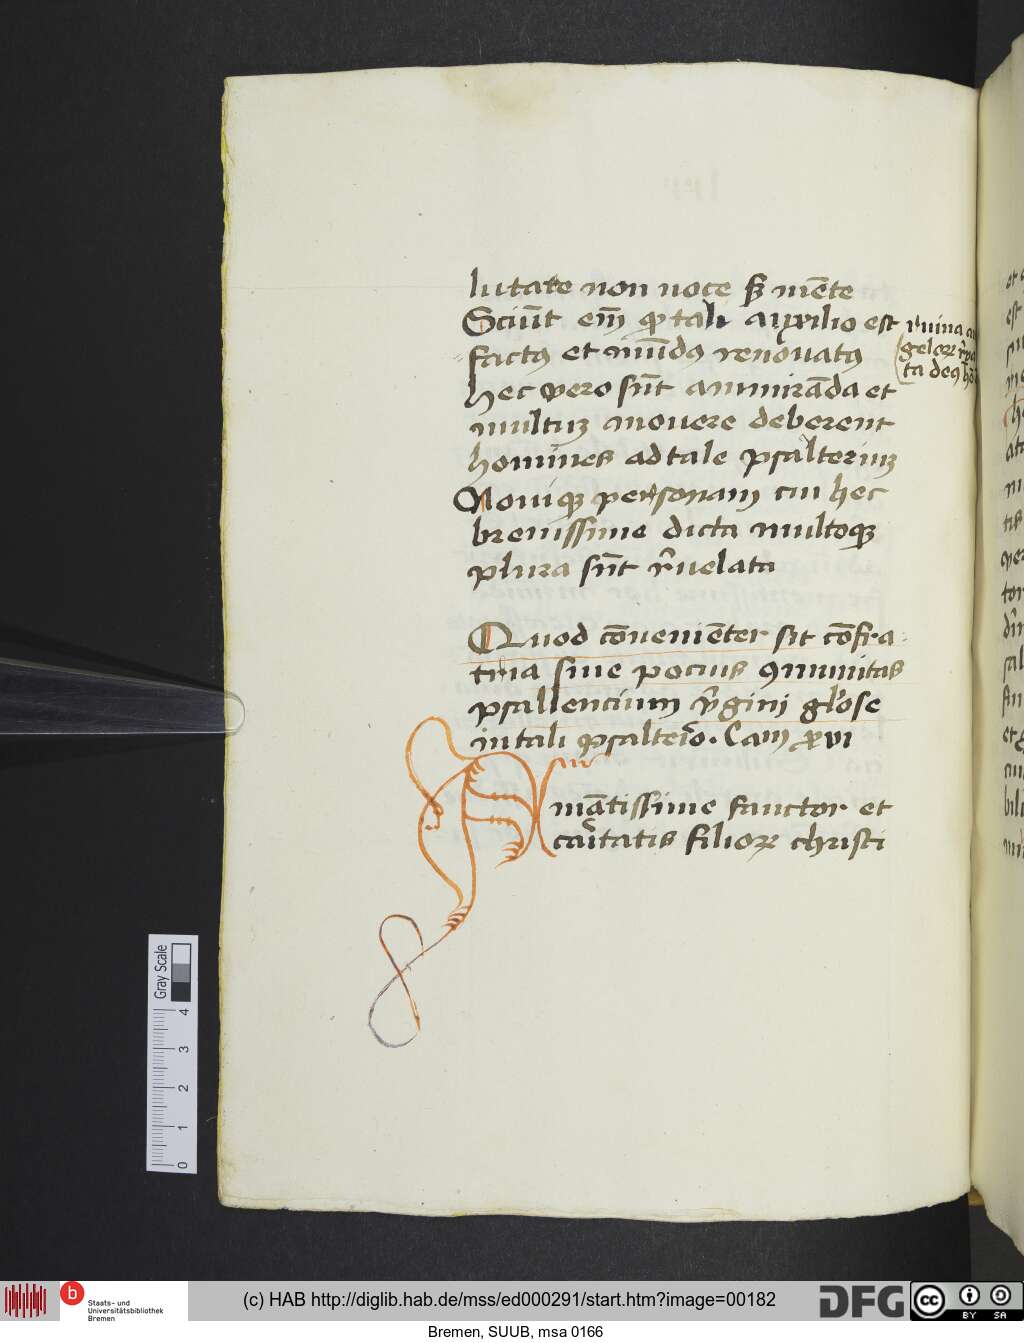 lutate non voce sꝫ mēte
Sciūt em̄ qꝫ tali auxilio est
factꝰ et mūdꝰ renovatꝰ
hec vero sūt ammirāda et
multum movere deberent
homines ad tale psalterium
Noviqꝫ personam cui hec
brevissime dicta multoqꝫ
plura sūt r̄velata
ruina an
gelorꝝ
ta deꝰ
Quod cōvenienter sit cōfra
tr̄ia sive pocius ꝯmunitas
psallencium v̄gini gl̄ose
in tali psalterio. Cam xvi
Amātissime fauctor et
caritatis filiorꝝ christi
Gray Scale
4
3
2
1
0
b
Staats- und
Universitätsbibliothek
Bremen
(c) HAB http://diglib.hab.de/mss/ed000291/start.htm?image=00182
DFG
cc
BY SA
Bremen, SUUB, msa 0166